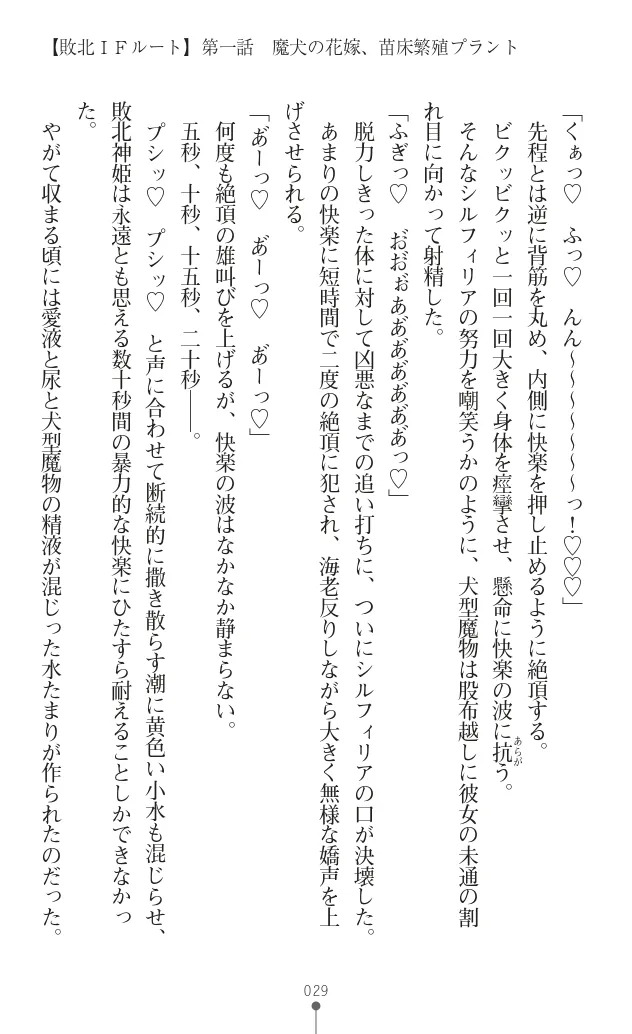 【敗北ＩＦルート】第一話　魔犬の花嫁、苗床繁殖プラント
「くぁっ♡　ふっ♡　んん～～～～～～～っ！♡♡♡」
　先程とは逆に背筋を丸め、内側に快楽を押し止めるように絶頂する。
　ビクッビクッと一回一回大きく身体を痙攣させ、懸命に快楽の波に抗（あらが）う。
　そんなシルフィリアの努力を嘲笑うかのように、犬型魔物は股布越しに彼女の未通の割
れ目に向かって射精した。
「ふぎっ♡　お゛お゛ぉ゛あ゛あ゛あ゛あ゛あ゛あ゛っ♡」
　脱力しきった体に対して凶悪なまでの追い打ちに、ついにシルフィリアの口が決壊した。
　あまりの快楽に短時間で二度の絶頂に犯され、海老反りしながら大きく無様な嬌声を上
げさせられる。
「あ゛ーっ♡　あ゛ーっ♡　あ゛ーっ♡」
　何度も絶頂の雄叫びを上げるが、快楽の波はなかなか静まらない。
　五秒、十秒、十五秒、二十秒――。
　プシッ♡　プシッ♡　と声に合わせて断続的に撒き散らす潮に黄色い小水も混じらせ、
敗北神姫は永遠とも思える数十秒間の暴力的な快楽にひたすら耐えることしかできなかっ
た。
　やがて収まる頃には愛液と尿と犬型魔物の精液が混じった水たまりが作られたのだった。
029